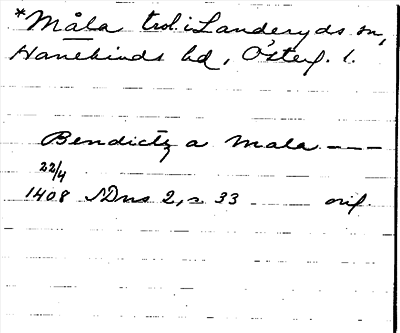 *Måla trol. i Landeryds sn,
Hanekinds hd, Österg. l.
Bendictz a Mala ---
22/4
1408 SDns 2, s 33 orig.